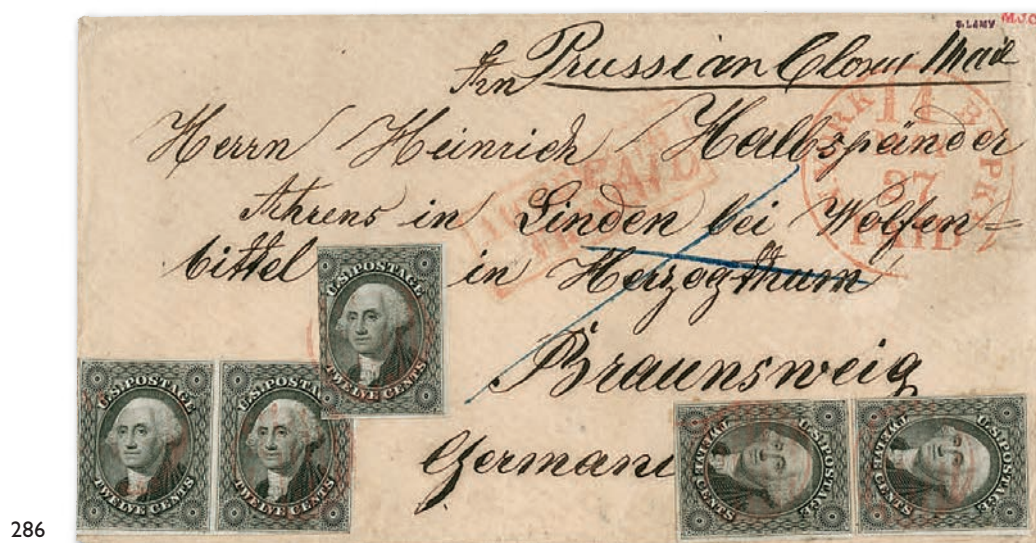 S. LAMY M.J.C
An Prussian Closed Mail
Herrn Heinrich Halbspänder
Ahrens in Linden bei Wolfen=
bittel in Herzogthum
Braunsweig
Germani
14
27
PAID
PAID
U.S. POSTAGE
TWELVE CENTS
U.S. POSTAGE
TWELVE CENTS
U.S. POSTA
TWELVE CENTS
U.S. POSTAGE
TWELVE CENTS
U.S. POSTAGE
TWELVE CENTS
286